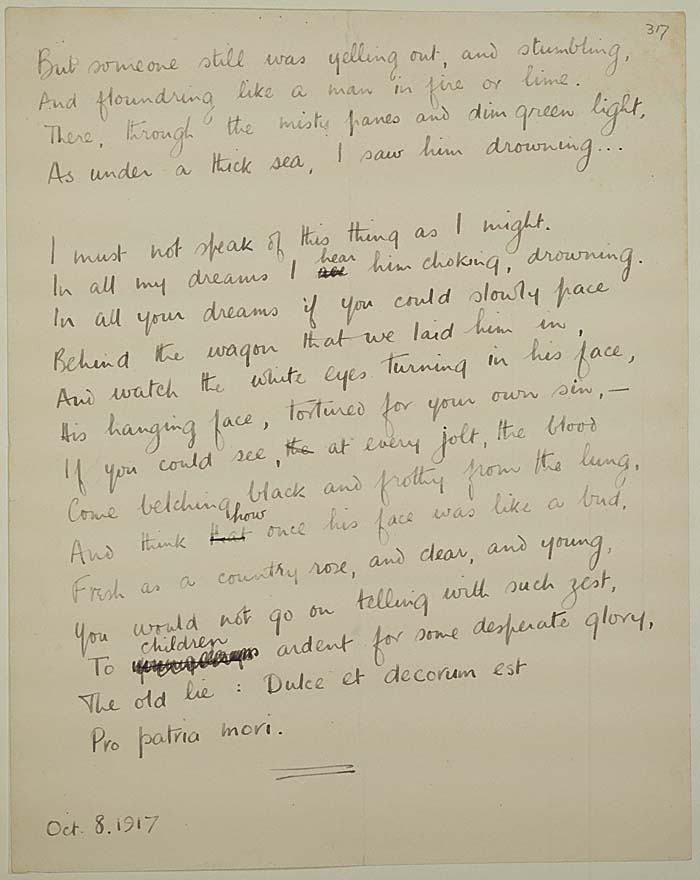 317
But someone still was yelling out, and stumbling,
And floundring like a man in fire or lime.
There, through the misty panes and dim green light,
As under a thick sea, I saw him drowning...
I must not speak of this thing as I might.
In all my dreams I hear him choking, drowning.
In all your dreams if you could slowly pace
Behind the wagon that we laid him in,
And watch the white eyes turning in his face,
His hanging face, tortured for your own sin,—
If you could see, the at every jolt, the blood
Come belching black and frothy from the lung,
And think that how once his face was like a bud,
Fresh as a country rose, and clear, and young,
You would not go on telling with such zest,
To children ardent for some desperate glory,
The old lie : Dulce et decorum est
Pro patria mori.
Oct. 8. 1917